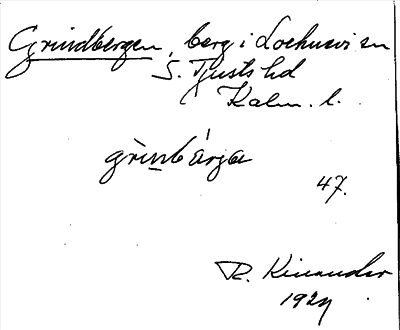 Grindbergen, berg i Locknevi sn
S. Tjusts hd
Kalm. l.
grìnbärja
47.
R. Kinander
1927